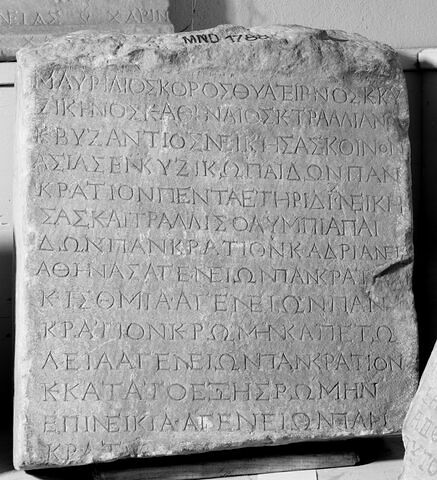 ΕΙΑΣ Ο ΧΑΡΙΝ
MND 1788
Μ ΑΥΡΙΛΙΟΣ ΚΟΡΟΣ ΘΥΑΤΕΙΡΝΟΣ Κ ΚΥ
ΖΙΚΗΝΟΣ Κ ΑΘΗΝΑΙΟΣ Κ ΤΡΑΛΛΙΑΝΟ
Κ ΒΥΖΑΝΤΙΟΣ ΝΕΙΚΗΣΑΣ ΚΟΙΝΟΝ
ΑΣΙΑΣ ΕΝ ΚΥΖΙΚΩ ΠΑΙΔΩΝ ΠΑΝ
ΚΡΑΤΙΟΝ ΠΕΝΤΑΕΤΗΡΙΔΙ ΝΕΙΚΗ
ΣΑΣ ΚΑΙ ΤΡΑΛΛΙΣ ΟΛΥΜΠΙΑ ΠΑΙ
ΔΩΝ ΠΑΝΚΡΑΤΙΟΝ Κ ΑΔΡΙΑΝΕΙ
ΑΘΗΝΑΣ ΑΓΕΝΕΙΩΝ ΠΑΝΚΡΑΤΙ
Κ ΙΣΘΜΙΑ ΑΓΕΝΕΙΩΝ ΠΑΝ
ΚΡΑΤΙΟΝ Κ ΡΩΜΗΝ ΚΑΠΕΤΩ
ΛΕΙΑ ΑΓΕΝΕΙΩΝ ΠΑΝΚΡΑΤΙΟΝ
Κ ΚΑΤΑ ΤΟ ΕΞΗΣ ΡΩΜΗΝ
ΕΠΙΝΕΙΚΙΑ ΑΓΕΝΕΙΩΝ ΠΑΝ
ΚΡΑΤΙ